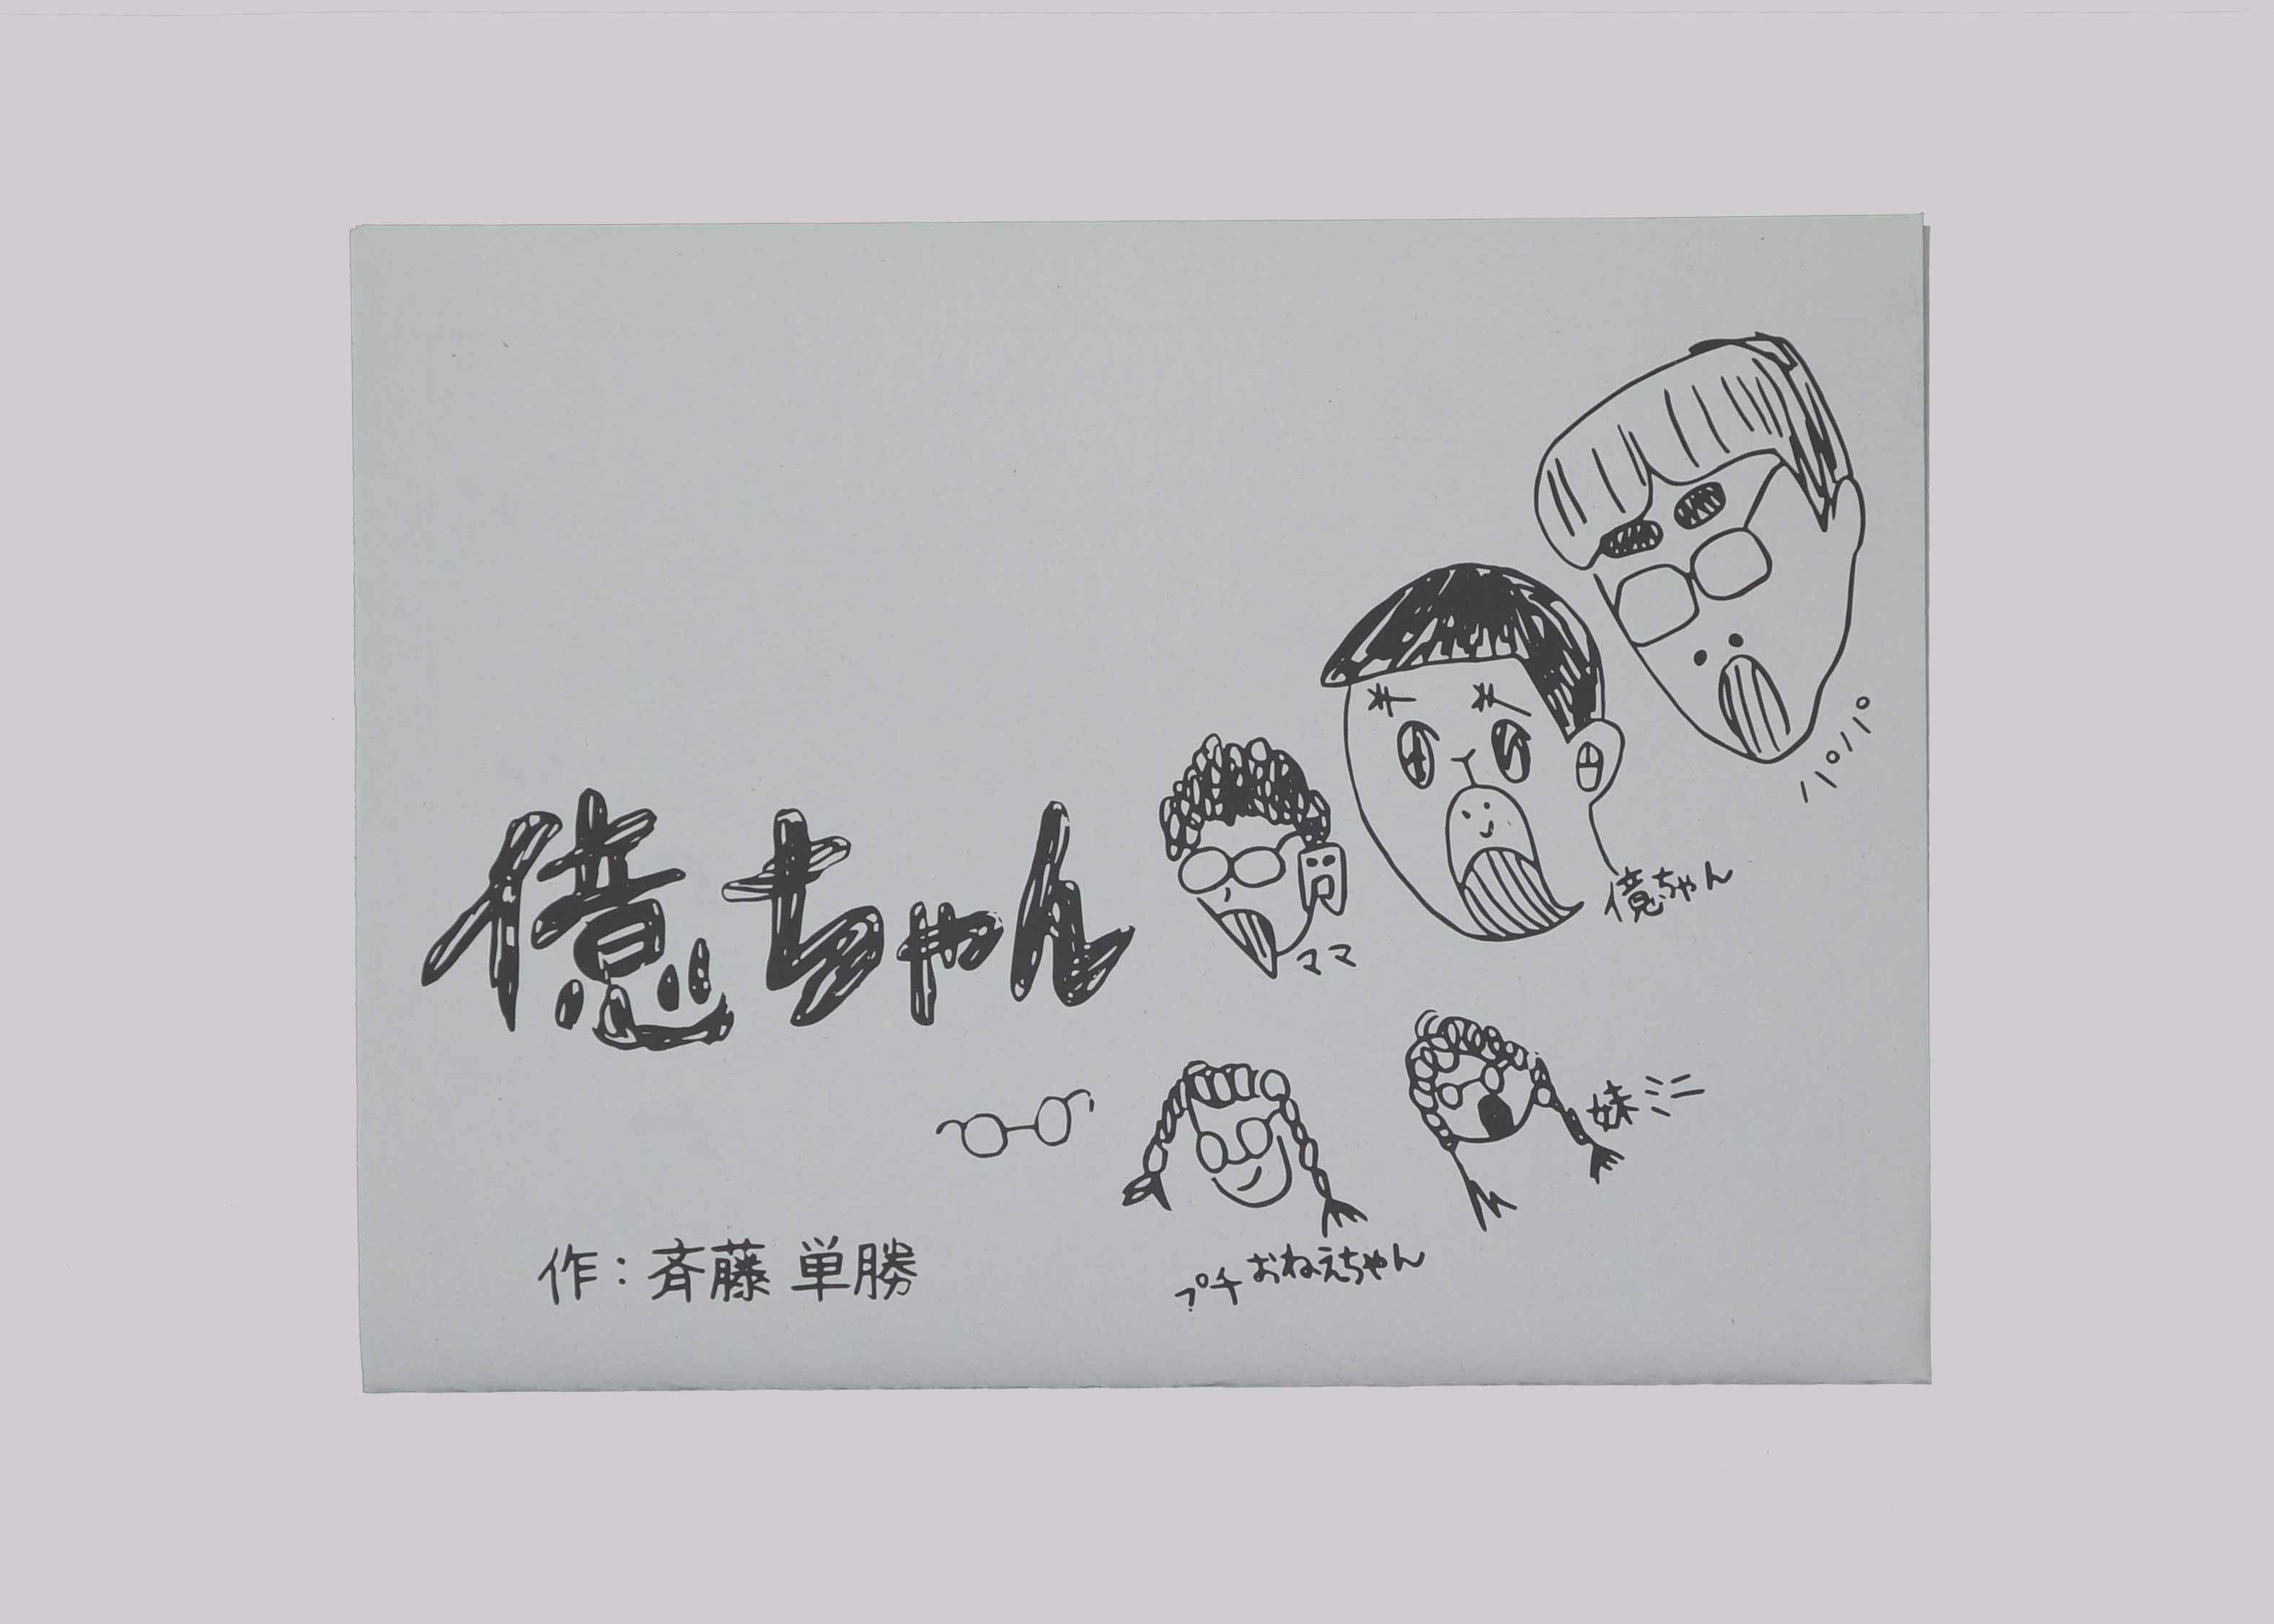 億ちゃん
パパ
億ちゃん
ママ
妹ミニ
プチおねえちゃん
作：斉藤 単勝